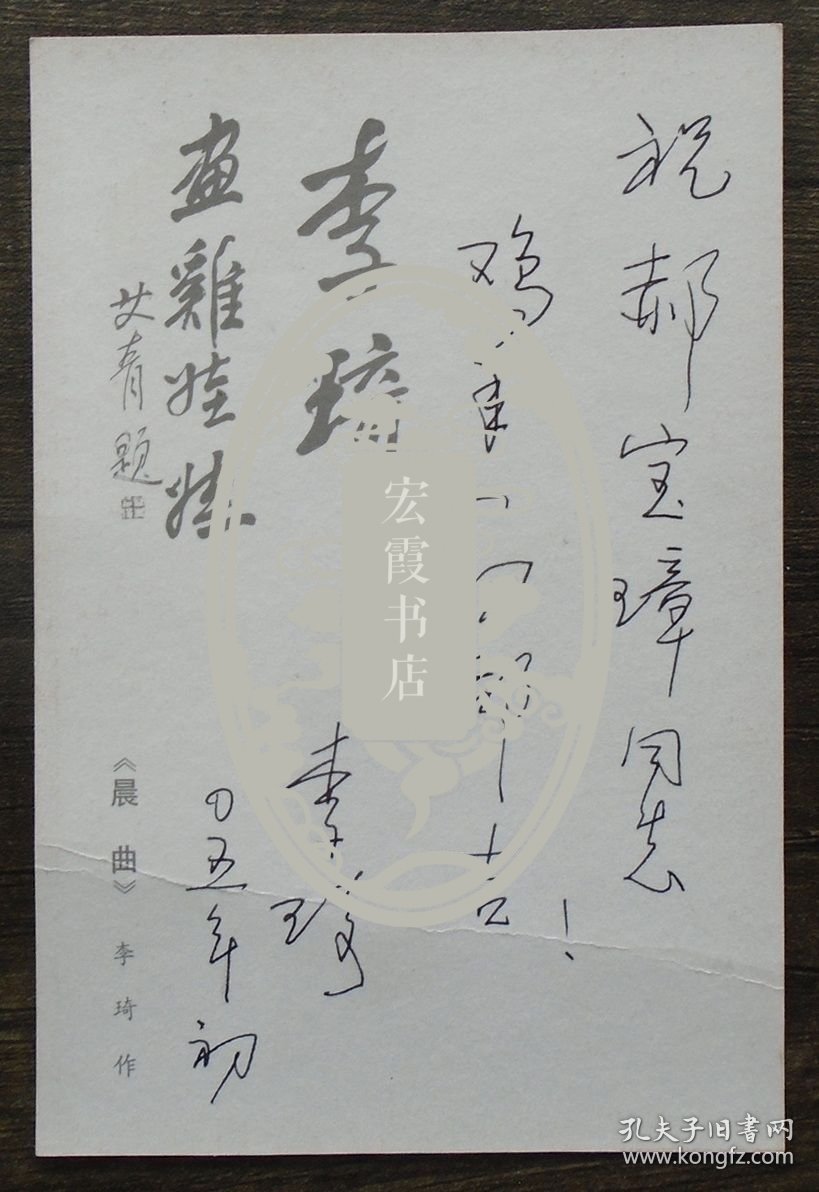 祝郝宝璋同志
鸡年
吉！
李琦
〇五年初
李琦
画雞娃娃
艾青题
《晨曲》 李琦作
宏霞书店
孔夫子旧书网
www.kongfz.com